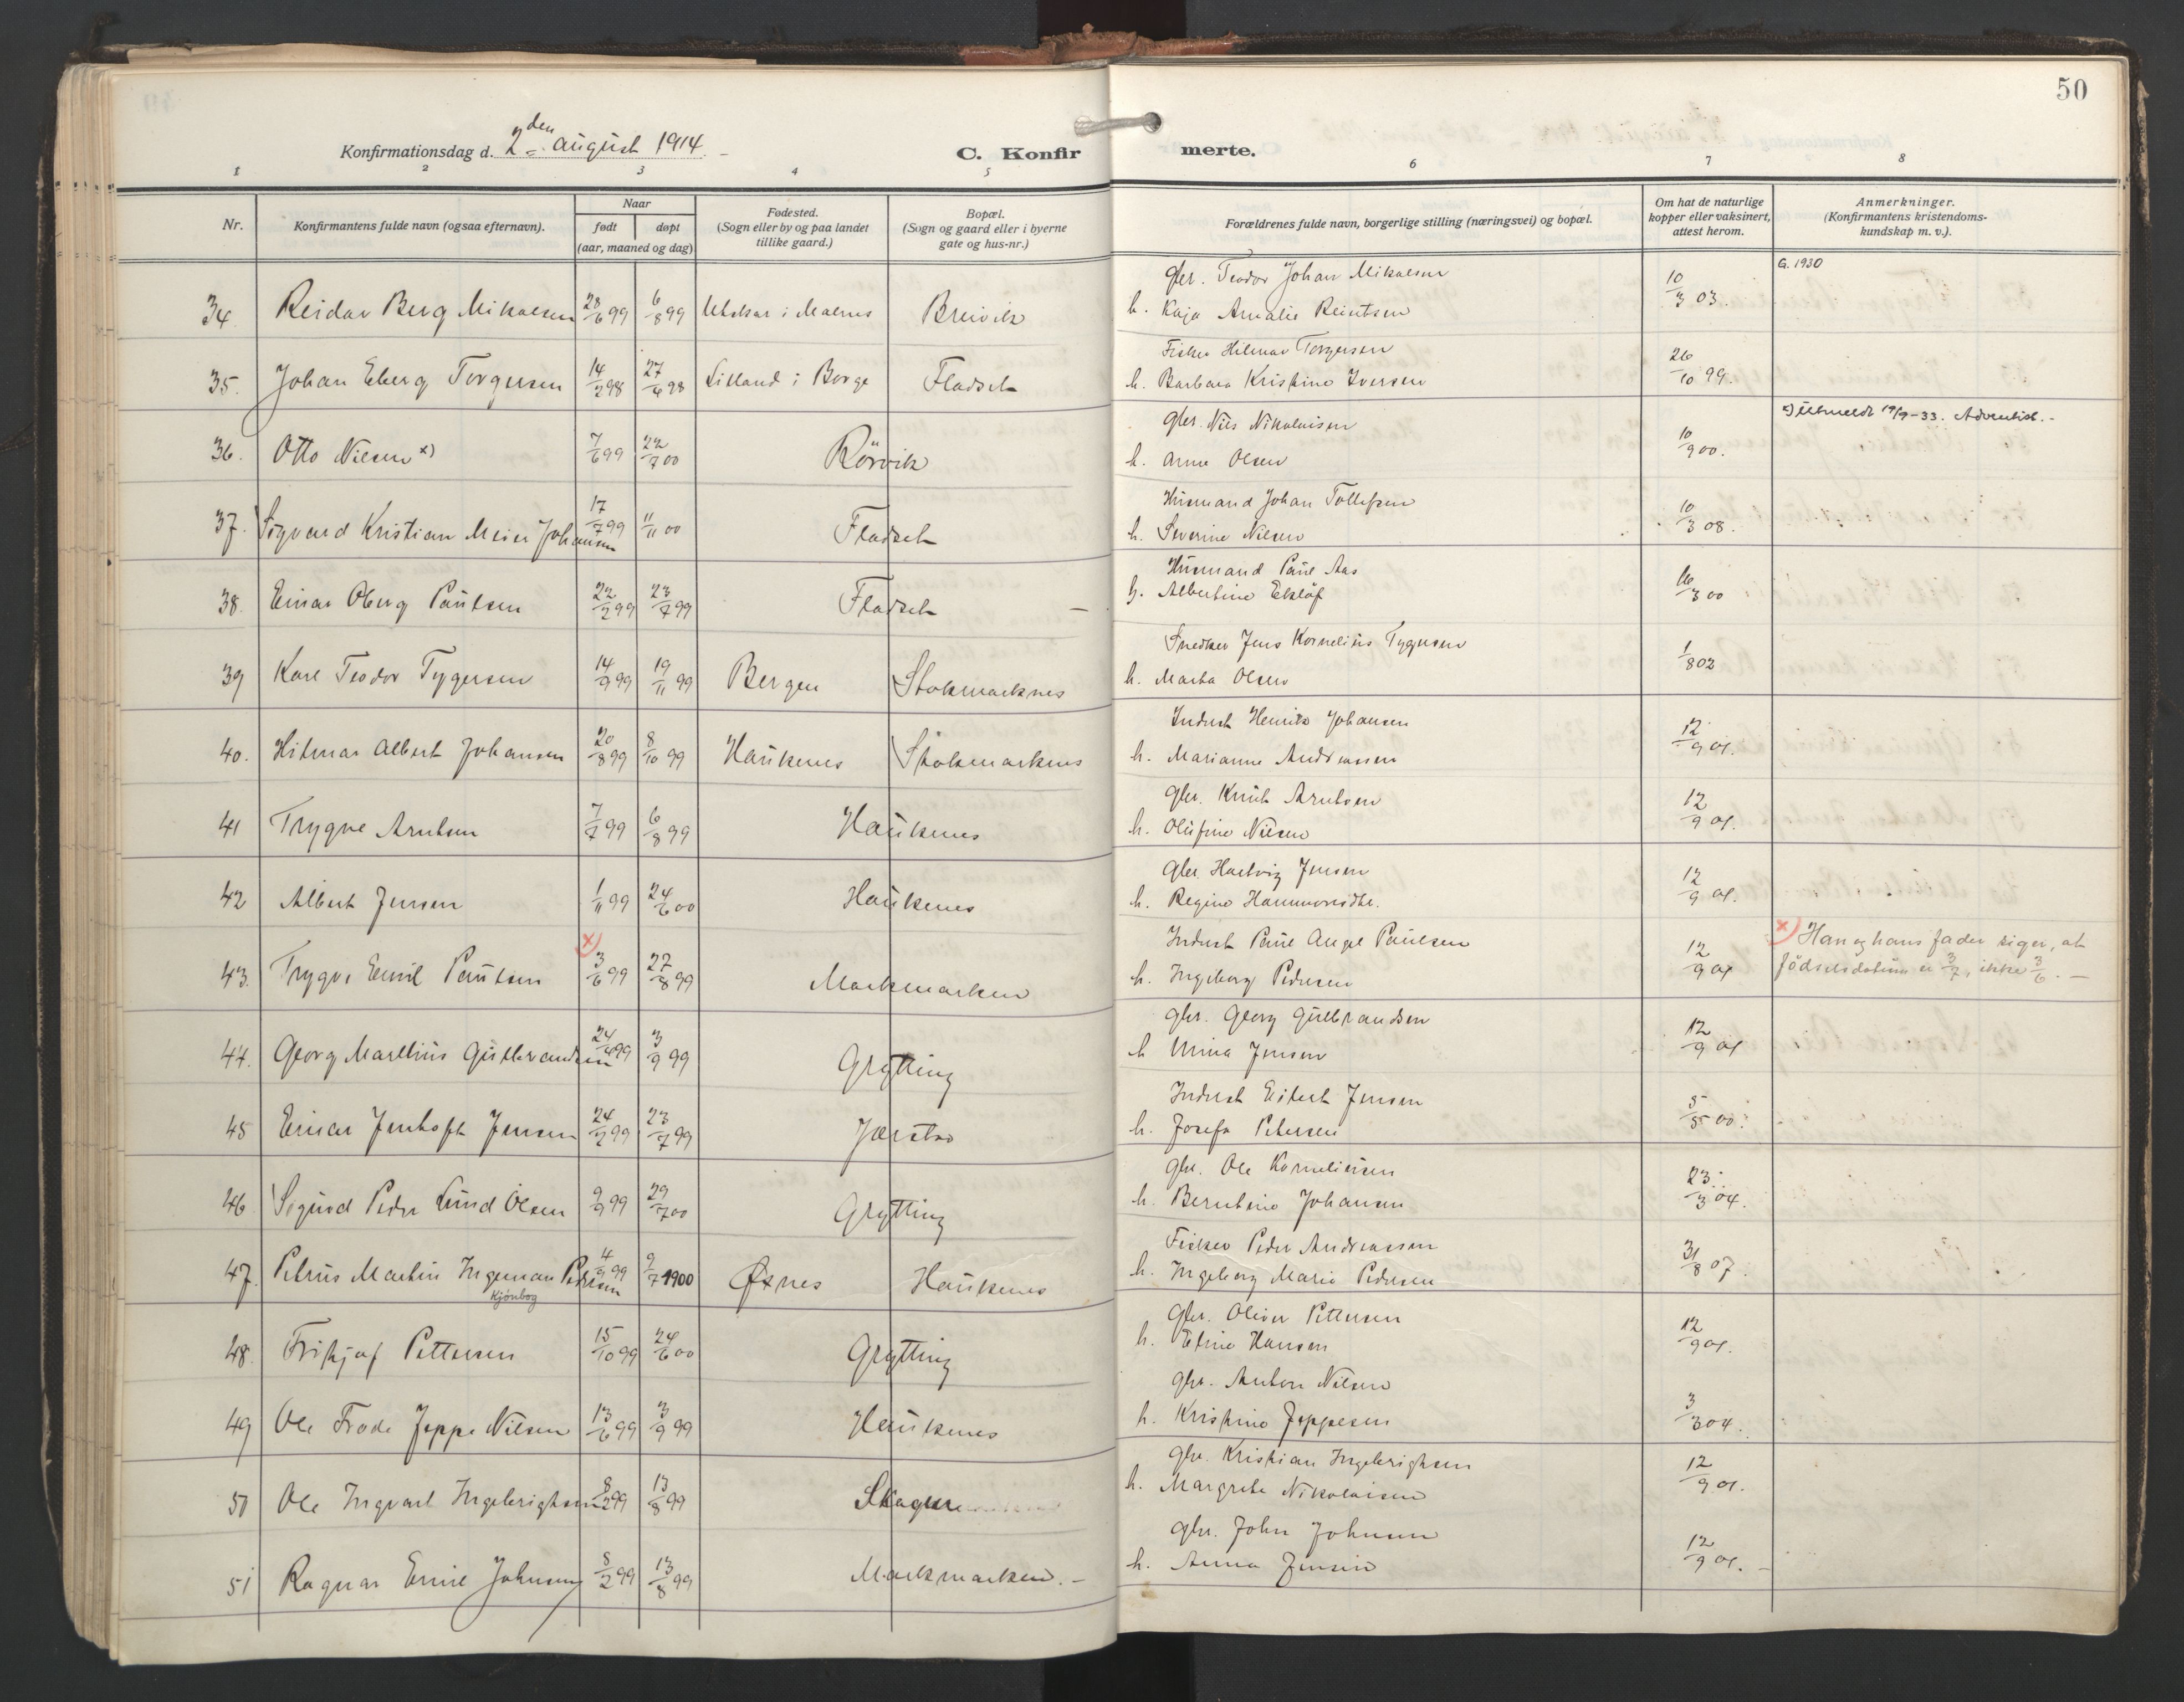 50
Konfirmationsdag d. 2den august 1914.
C. Konfirmerte.
1 2 3 4 5 6 7 8
Nr.
Konfirmantens fulde navn (ogsaa efternavn).
Naar
født
døpt
(aar, maaned og dag)
Fødested.
(Sogn eller by og paa landet
tillike gaard.)
Bopæl.
(Sogn og gaard eller i byerne
gate og hus-nr.)
Forældrenes fulde navn, borgerlige stilling (næringsvei) og bopæl.
Om hat de naturlige
kopper eller vaksinert,
attest herom.
Anmerkninger.
(Konfirmantens kristendoms-
kundskap m. v.).
G. 1930
gbr. Teodor Johan Mikalsen
34. Reidar Berg Mikalsen 28/6 99 6/8 99 i Malnes Breivik h. Kaja Amalie Reintsen 10/3 03.
Fisker Hilmar Torgersen
35. Johan Eberg Torgersen 14/2 98 27/6 98 Lilland i Borge Fladset h. Barbara Kristine Iversen 26/10 99.
x) Utmeldt 19/9-33. Adventist.-
gbr. Nils Nikolaisen
36. Otto Nilsen x) 7/6 99 22/7 00 Rörvik h. Anne Olsen 10/9 00.
Husmand Johan Tollefsen
37. Sigvard Kristian Meier Johansen 17/7 99 11/11 00 Fladset h. Severine Nilsen 10/3 08.
Husmand Paul Aas
38. Einar Oberg Paulsen 22/2 99 23/7 99 Fladset h. Albertine Eklöf 16/3 00
Snedker Jens Kornelius Tygesen
39 Karl Teodor Tygesen 14/9 99 19/11 99 Bergen Stokmarknes h. Marta Olsen 1/8 02
Indust Henrik Johansen
40. Hilmar Albert Johansen 20/8 99 8/10 99 Haukenes Stokmarknes h. Marianne Andreassen 12/9 01.
gbr. Knut Arntsen
41 Trygve Arntsen 7/7 99 6/8 99 Haukenes h. Olufine Nilsen 12/9 01.
gbr. Hartvig Jensen
42 Albert Jensen 1/11 99 24/6 00 Haukenes h. Regine Hammondtr. 12/9 01.
Indust Paul Angel Paulsen
x) Han og hans fader siger, at
43. Trygve Emil Paulsen x) 3/6 99 27/8 99 Markmarken h. Ingeborg Pedersen 12/9 01 födselsdatum er 3/7, ikke 3/6. -
gbr. Georg Gulbrandsen
44. Georg Marelius Gulbrandsen 24/4 99 3/9 99 Grytting h. Mina Jensen 12/9 01
Indust Eilert Jensen
45 Einar Jentoft Jensen 24/2 99 23/7 99 Jørstad h. Josefa Petersen 5/5 00.
gbr. Ole Korneliussen
46. Sigurd Peder Lund Olsen 9/9 99 29/7 00 Grytting h. Berntine Johansen 23/3 04.
Fisker Peder Andreassen
47. Petrus Martin Ingeman Pedersen 4/9 99 9/7 1900 Øxnes Haukenes h. Ingeborg Marie Pedersen 31/8 07.
Kjönbog
gbr. Oliver Pettersen
48. Fritjof Pettersen 15/10 99 24/6 00 Grytting h. Eline Hansen 12/9 01.
gbr. Anton Nilsen
49 Ole Frode Jeppe Nilsen 13/6 99 3/9 99 Haukenes h. Kristine Jeppesen 3/3 04.
gbr. Kristian Ingebrigtsen
50 Ole Ingvart Ingebrigtsen 8/2 99 13/8 99 Skagen h. Margrete Nikolaisen 12/9 01.
gbr. John Johnsen
51 Ragnar Emil Johnsen 8/2 99 13/8 99 Markmarken. - h. Anna Jensen 12/9 01. -